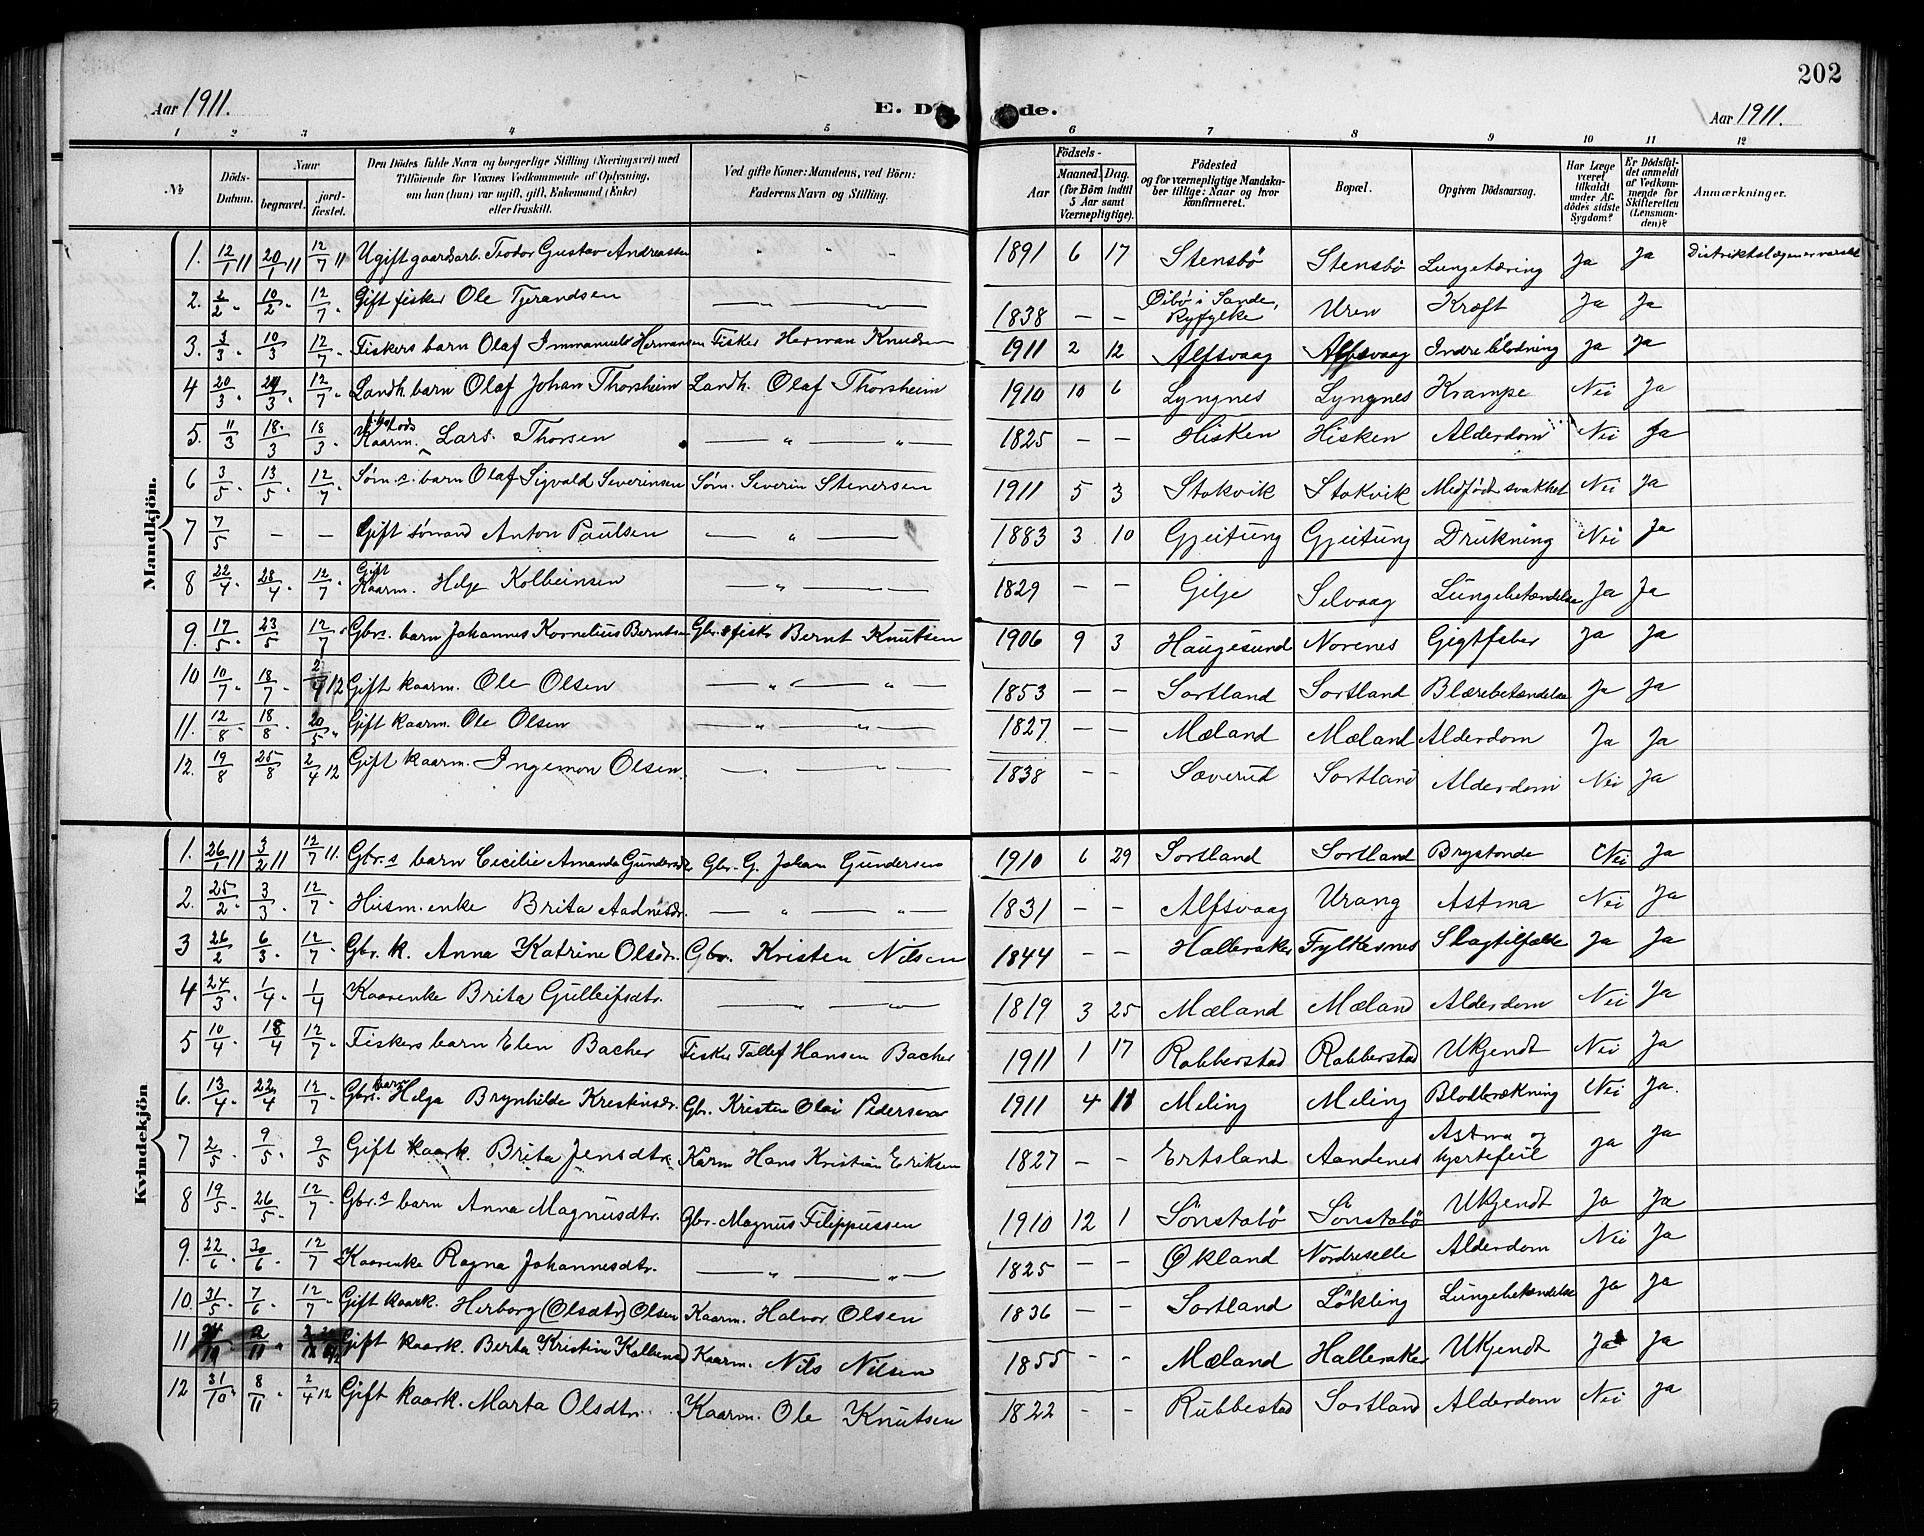 202
Aar 1911. E. D de. Aar 1911.
1 2 3 4 5 6 7 8 9 10 11 12
No
Döds-Datum.
Naar
begravet.
jord-fæstet.
Den Dödes fulde Navn og borgerlige Stilling (Næringsvei) med
Tilföiende for Voxnes Vedkommende af Oplysning,
om han (hun) var ugift, gift, Enkemand (Enke)
eller fraskilt.
Ved gifte Koner: Mandens, ved Börn:
Faderens Navn og Stilling.
Födsels-
Aar
Maaned. Dag.
(for Börn indtil
5 Aar samt
Værnepligtige).
Födested
og for værnepligtige Mandska-
ber tillige: Naar og hvor
konfirmeret.
Bopæl.
Opgiven Dödsaarsag.
Har Læge
været
tilkaldt
under Af-
dödes sidste
Sygdom?
Er Dödsfal-
det anmeldt
af Vedkom-
mende for
Skifteretten
(Lensman-
den)?
Anmærkninger.
Mandkjön.
1. 12/1 11 20/1 11 12/7 11 Ugift gaardsarb. Teodor Gustav Andreassen " " " 1891 6 17 Stensbö Stensbö Lungetæring Ja Ja Distriktslægen er varslet
2. 2/2 " 10/2 " 12/7 " Gift fisker Ole Tjerandsen — " — — " — 1838 – – Öibö i Sande, Ryfylke Uren Kræft Ja Ja
3. 3/3 " 10/3 12/7 " Fiskers barn Olaf Immanuels Hermansen Fisker Herman Knudsen 1911 2 12 Alfsvaag Alfsvaag Indre blödning Ja Ja
4 20/3 " 24/3 " 12/7 " Landh. barn Olaf Johan Thorsheim Landh. Olaf Thorsheim 1910 10 6 Lyngnes Lyngnes Krampe Nei Ja
5. 11/3 18/3 18/3 " Kaarm. Lars Thorsen — " — " — 1825 – – Hisken Hisken Alderdom Nei Ja
6 3/5 " 13/5 " 12/7 " Søm.s. barn Olaf Sigvald Severinsen Søm. Severin Stenersen 1911 5 3 Stokvik Stokvik Medfödt svakhet Nei Ja
7 7/5 – – Gift sømand Anton Paulsen — " — 1883 3 10 Gjeitung Gjeitung Drukning Nei Ja
8 22/4 28/4 " 12/7 " Gift Kaarm. Helje Kolbeinsen — " — — 1829 – – Gilje Selvaag Lungebetændelse Ja Ja
9. 17/5 " 23/5 12/7 " Gbr.s. barn Johannes Kornelius Berntsen Gbr. & fisk. Bernt Knutsen 1906 9 3 Haugesund Norenes Gigtfeber Ja Ja
10 10/7 " 18/7 " 12 Gift kaarm. Ole Olsen — " — " — 1853 – – Sortland Sortland Blærebetændelse Ja Ja
11. 12/8 18/8 " 20/5 " Gift kaarm. Ole Olsen — " — " — 1827 – – Mæland Mæland Alderdom Ja Ja
12. 19/8 25/8 2/4 12 Gift kaarm. Ingemon Olsen — " — " — 1838 – – Sæverud Sortland Alderdom Nei Ja
Kvindekjön
1. 26/1 11 3/2 11 12/7 11. Gbr.s barn Cecilie Amanda Gundersdtr Gbr. G. Johan Gundersen 1910 6 29 Sortland Sortland Brystonde Nei Ja
2. 25/2 " 3/3 " 12/7 " Husm. enke Brita Aadnesdr. — " — " — 1831 – – Alfsvaag Urang Astma Nei Ja
3 26/2 6/3 " 12/7 " Gbr. k. Anna Katrine Olsdr. Gbr. Kristen Nilsen 1844 – – Halleraker Fylkesnes Slagtilfælde Ja Ja
4 24/3 " 1/4 " 1/4 Kaarenke Brita Gulleifsdtr. — " — " — 1819 3 25 Mæland Mæland Alderdom Nei Ja
5 10/4 " 18/4 12/7 " Fiskers barn Elen Bacher Fisker Tollef Hansen Bacher 1911 1 17 Robberstad Robberstad Ukjendt Nei Ja
6. 13/4 " 22/4 12/7 " Gbr. barn Helga Brynhilde Kristinsdr. Gbr. Kristen Olai Pedersen 1911 4 11 Meling Meling Blodbrækning Nei Ja.
7 2/5 " 9/5 " 9/5 Gift kaark. Brita Jensdtr. Karm Hans Kristian Eriksen 1827 – – Ertsland Aandenes Astma og hjertefeil Ja Ja
8 19/5 " 26/5 " 12/7 " Gbr.s barn Anna Magnusdtr. Gbr. Magnus Filippussen 1910 12 1 Sönstabö Sönstabö Ukjendt Ja Ja
9. 22/6 " 30/6 " 12/7 Kaarenke Ragna Johannesdtr. — " — " — 1825 – – Økland Nordreselle Alderdom Nei Ja
10. 31/5 " 7/6 " 12/7 " Gift kaark. Herborg (Olsdtr) Olsen Kaarm. Halvor Olsen 1836 – – Sortland Lökling Lungebetændelse Ja Ja
11 2/11 " Gift kaark. Berta Kristine Kaarm. Nils Nilsen 1855 – – Mæland Halleraker Ukjendt Ja Ja
12 31/10 " 8/11 " 2/4 12 Gift kaark. Marta Olsdtr. Kaarm. Ole Knutsen 1822 – – Rubbestad Sortland Alderdom Nei Ja